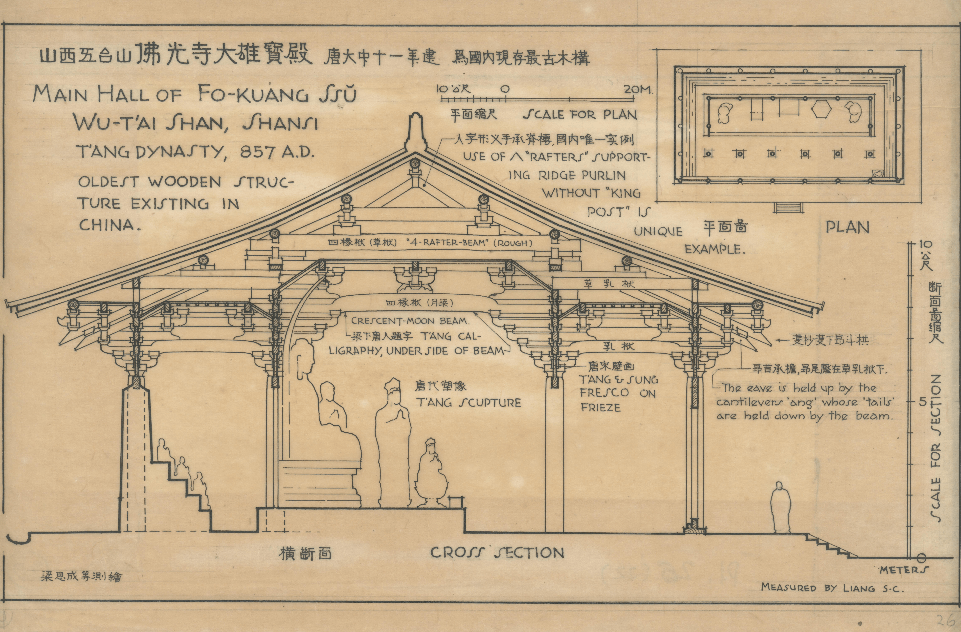 山西五台山佛光寺大雄寶殿 唐大中十一年建 為國内現存最古木構
MAIN HALL OF FO-KUANG SSŬ
WU-T'AI SHAN, SHANSI
T'ANG DYNASTY, 857 A.D.
OLDEST WOODEN STRUC-
TURE EXISTING IN
CHINA.
10 公尺 0 20M.
平面縮尺 SCALE FOR PLAN
人字形叉手承脊槫,國内唯一實例
USE OF A "RAFTERS" SUPPORT-
ING RIDGE PURLIN
WITHOUT "KING
POST" IS
UNIQUE
EXAMPLE.
平面圖 PLAN
四椽栿(草栿) "4-RAFTER-BEAM" (ROUGH)
草乳栿
四椽栿(月梁)
CRESCENT-MOON BEAM
梁下唐人題字 T'ANG CAL-
LIGRAPHY, UNDER SIDE OF BEAM
乳栿
唐宋壁画
T'ANG & SUNG
FRESCO ON
FRIEZE
唐代塑像
T'ANG SCUPTURE
雙杪雙下昂斗栱
昂首承檐,昂尾壓在草乳栿下.
The eave is held up by the
cantilevers 'ang' whose 'tails'
are held down by the beam.
10 公尺
断面圖縮尺
5
SCALE FOR SECTION
0
METERS
橫斷面 CROSS SECTION
梁思成等測繪
MEASURED BY LIANG S-C.
26